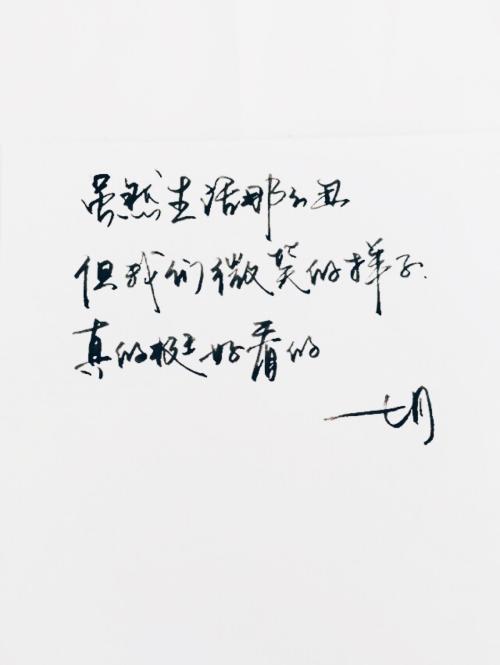 虽然生活那么丑
但我们微笑的样子.
真的挺好看的
——七月